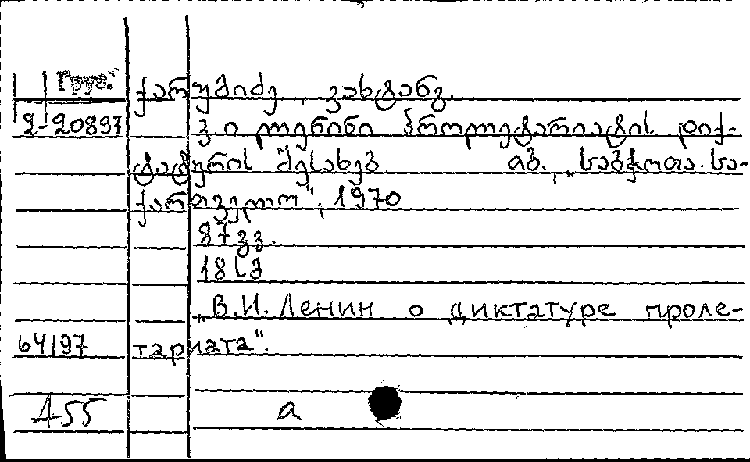 Груз. ქარუმიძე, ვახტანგ.
2-20897 ვ ი ლენინი პროლეტარიატის დიქ-
ტატურის შესახებ. თბ., „საბჭოთა სა-
ქართველო", 1970
87 გვ.
18 სმ
„В.И. Ленин о диктатуре проле-
64197 тариата".
A55 a